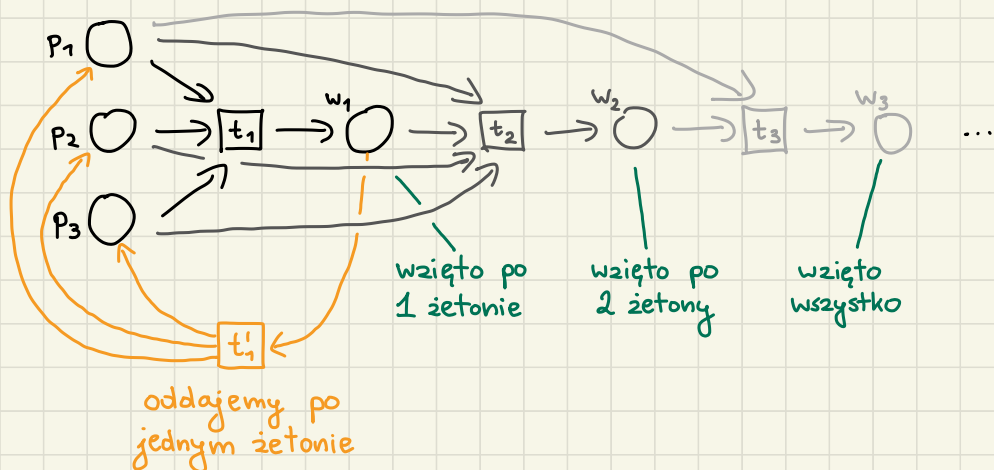 p1
p2
p3
t1
w1
t2
w2
t3
w3
...
wzięto po
1 żetonie
wzięto po
2 żetony
wzięto
wszystko
t1'
oddajemy po
jednym żetonie